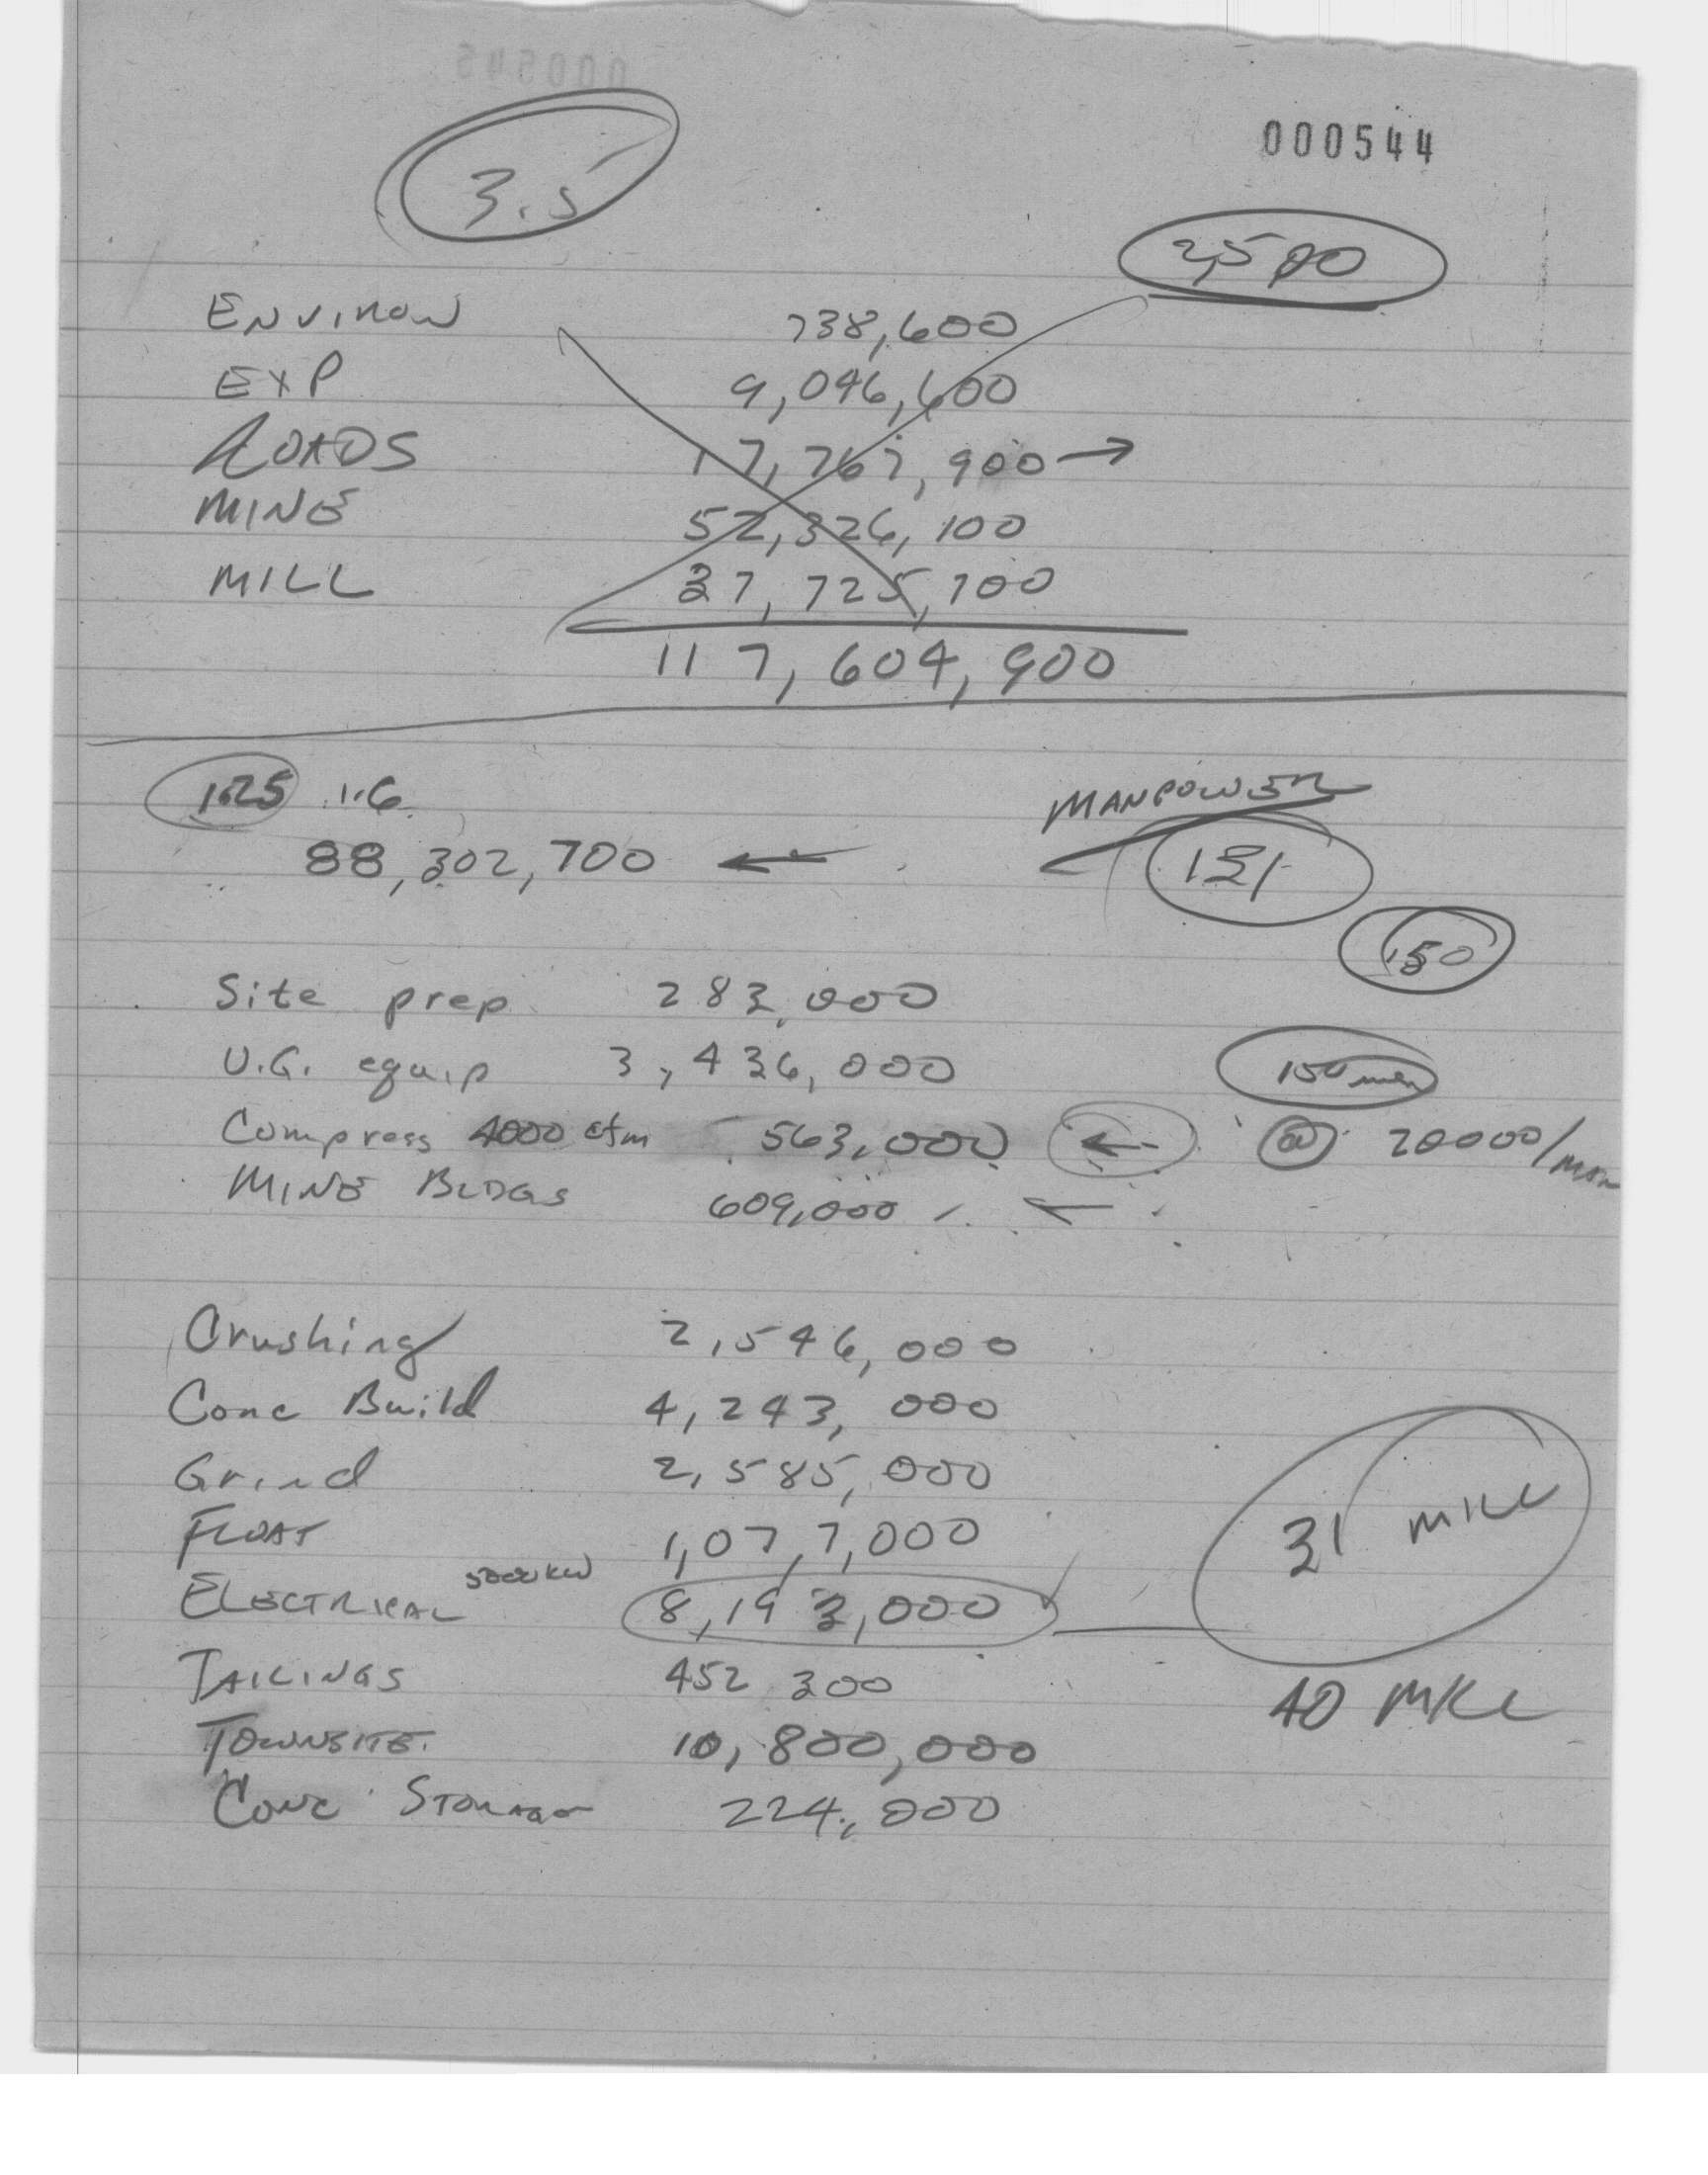 000545
000544
3.5
2,500
ENVIRON 738,600
EXP 9,046,600
ROADS 17,767,900 →
MINE 52,326,100
MILL 37,725,700
117,604,900
1.25 1.6
MANPOWER
88,302,700 ←
131
150
Site prep 283,000
U.G. equip 3,436,000
150 men
Compress 4000 cfm 563,000 ← @ 20000/man
MINE BLDGS 609,000 ←
Crushing 2,546,000
Conc Build 4,243,000
Grind 2,585,000
31 MILL
FLOAT 1,077,000
ELECTRICAL 5000 KW 8,193,000
TAILINGS 452 300
40 MILL
TOWNSITE. 10,800,000
CONC STORAGE 224,000